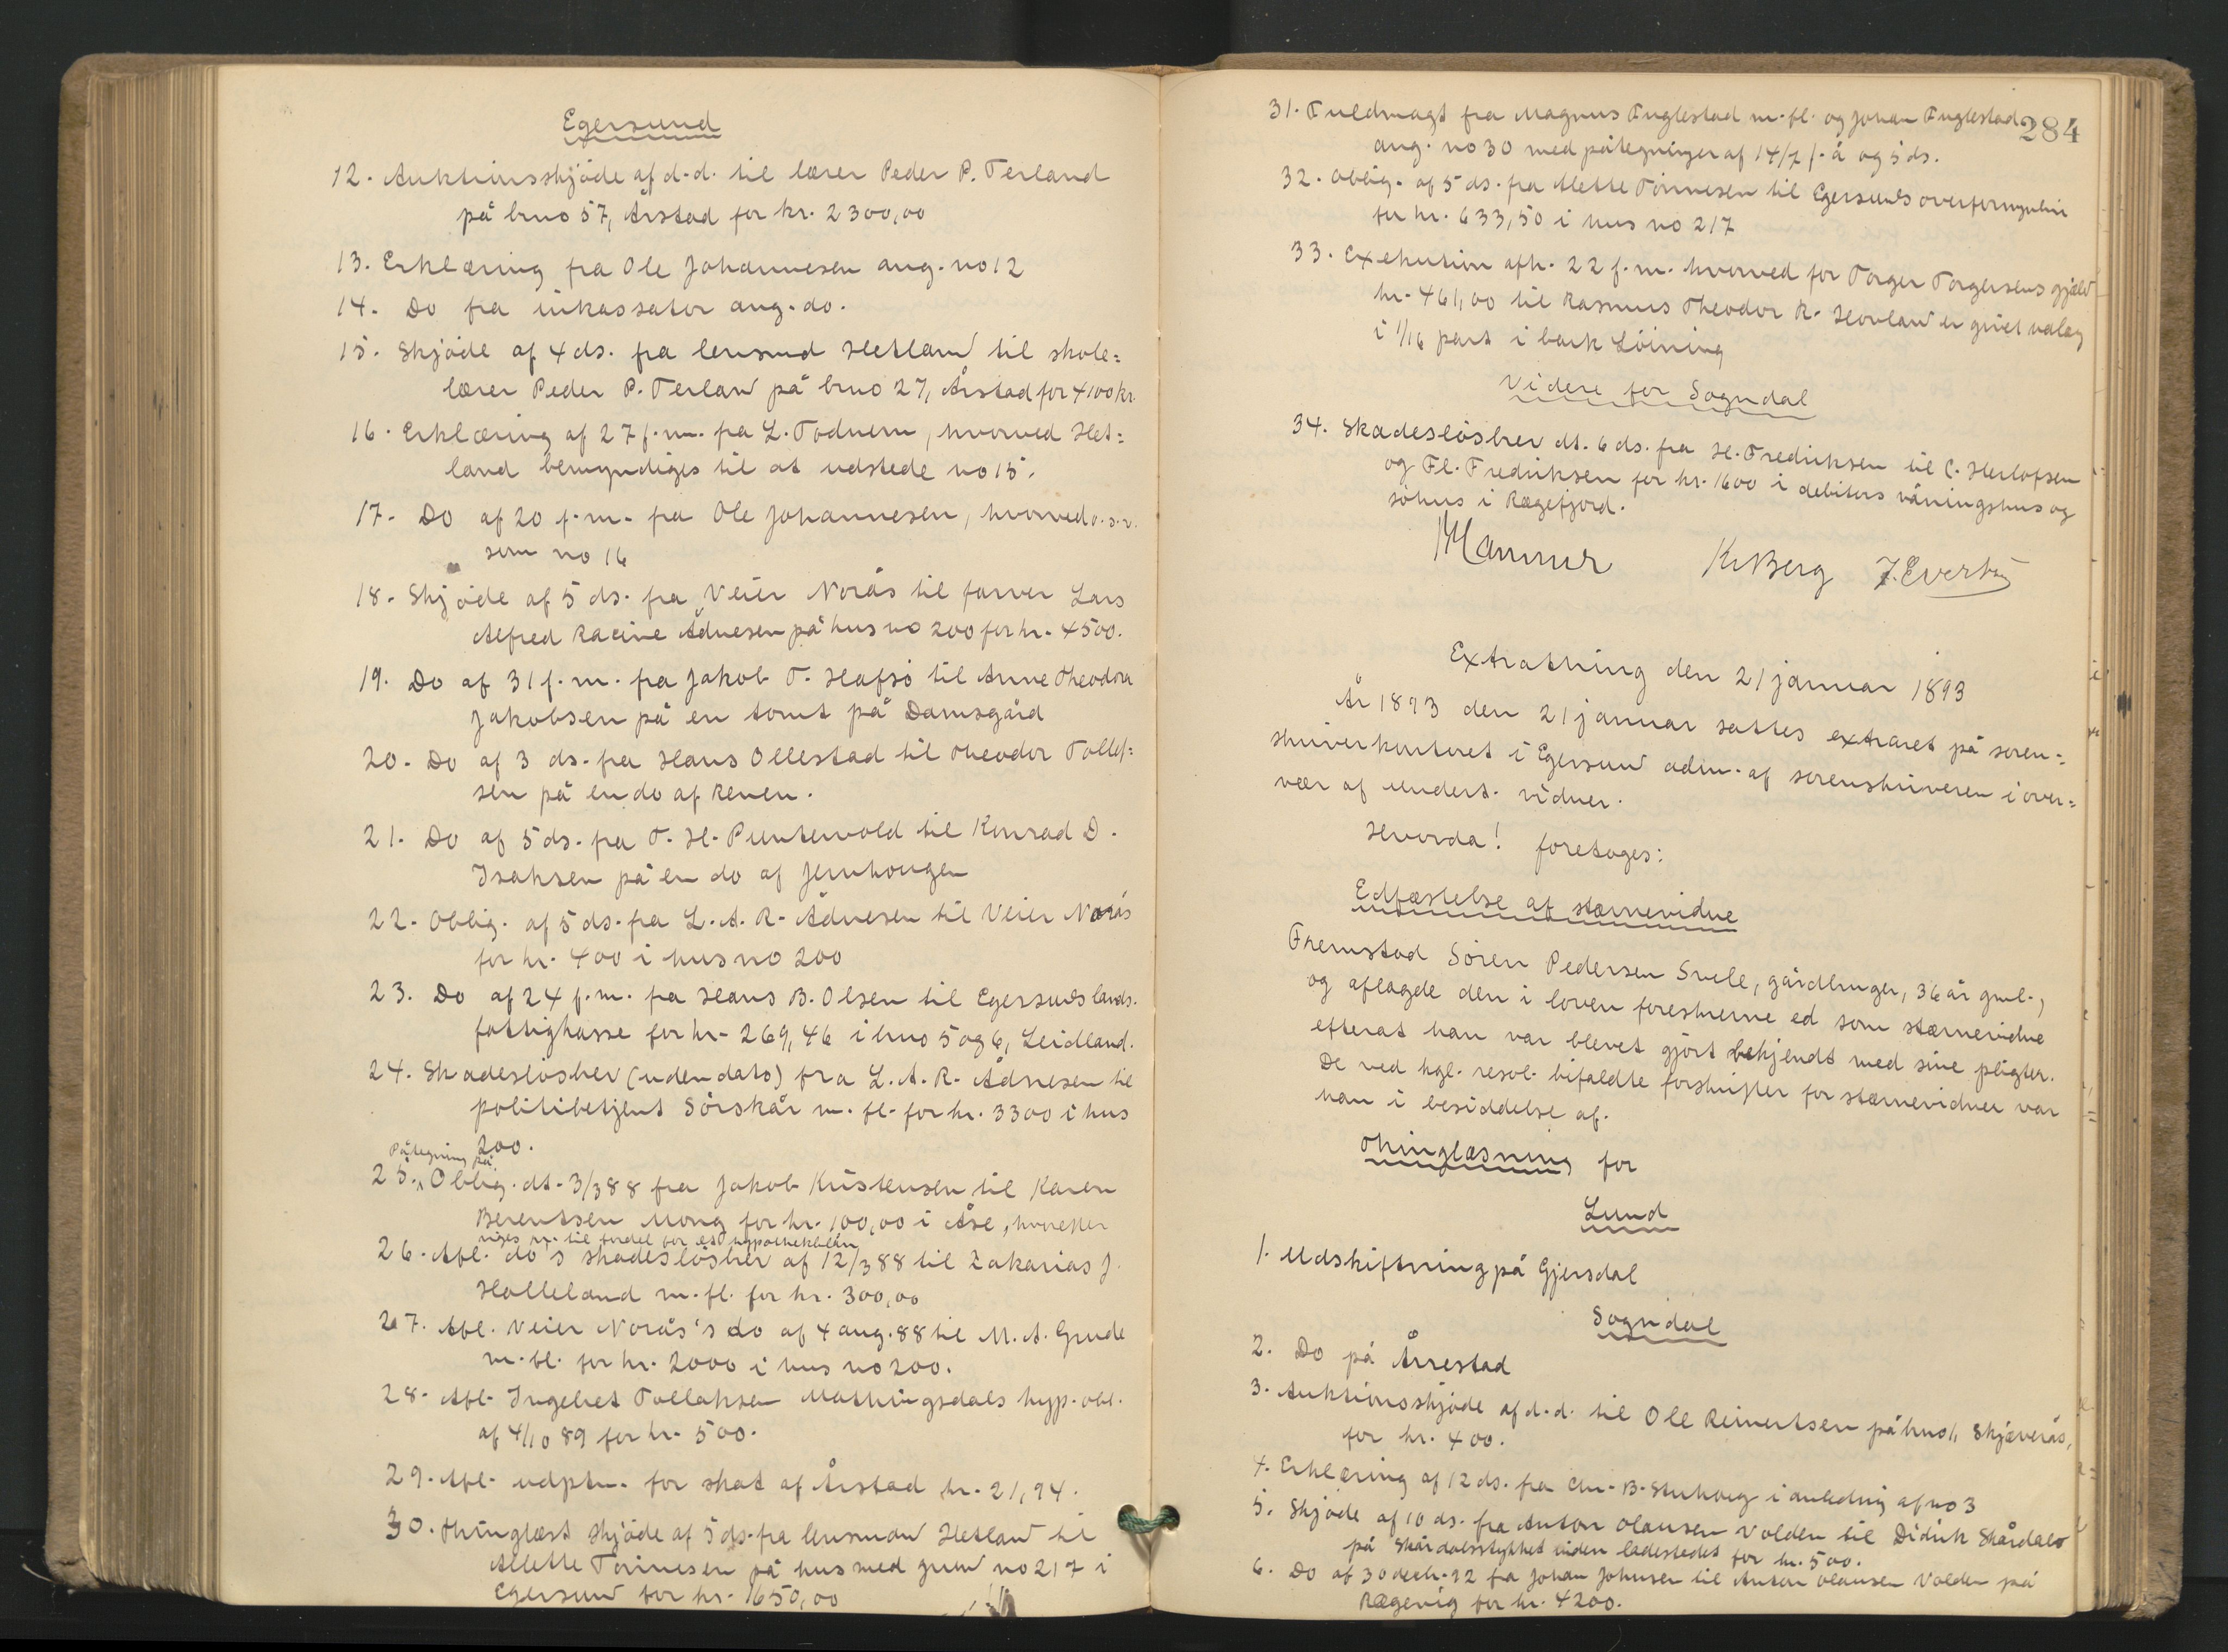 Egersund
12. Auktionsskjöde af d.d. til lærer Peder P. Terland
på bruo 57, Årstad for kr. 2300,00
13. Erklæring fra Ole Johannesen ang. no 12
14. Do fra inkassator ang. do.
15. Skjöde af 4 ds. fra lensmd Hetland til skole=
lærer Peder P. Terland på bruo 27, Årstad for 4100 kr.
16. Erklæring af 27 f.m. fra L. Todnem, hvorved Het=
land bemyndiges til at udstede no 15.
17. Do af 20 f.m. fra Ole Johannesen, hvorved o.s.v.
som no 16
18. Skjöde af 5 ds. fra Veier Norås til farver Lars
Alfred Racine Ådnesen på hus no 200 for kr. 4500.
19. Do af 31 f.m. fra Jakob T. Hafsö til Anne Theodora
Jakobsen på en tomt på Damsgård
20. Do af 3 ds. fra Hans Ollestad til Theodor Tollef=
sen på en do af Renen.
21. Do af 5 ds. fra T. H. Puntervold til Konrad D.
Isaksen på en do af Jernhougen
22. Oblig. af 5 ds. fra L. A. R. Ådnesen til Veier Norås
for kr. 400 i hus no 200
23. Do af 24 f.m. fra Hans B. Olsen til Egersunds lands.
fattigkasse for kr. 269,46 i bruo 5 og 6, Leidland.
24. Skadeslösbrev (uden dato) fra L. A. R. Ådnesen til
politibetjent Sörskår m. fl. for kr. 3300 i hus
200.
Påtegning på
25. Oblig. dt. 3/3 88 fra Jakob Kristensen til Karen
Berentsen Mong for kr. 100,00 i Åse, hvorefter
viges pr. til fordel for et hypotheklån
26. Afl. do's skadeslösbrev af 12/3 88 til Zakarias J.
Helleland m. fl. for kr. 300,00
27. Afl. Veier Norås's do af 4 aug. 88 til M. A. Grude
m. fl. for kr. 2000 i hus no 200.
28. Afl. Ingebret Tollaksen Mathingsdals hyp. obl.
af 4/10 89 for kr. 500.
29. Afl. udptn. for skat af Årstad kr. 21,94.
30. Thinglæst skjöde af 5 ds. fra lensmand Hetland til
Allette Tönnesen på hus med grund no 217 i
Egersund for kr. 1650,00
284
31. Fuldmagt fra Magnus Fuglestad m. fl. og Johan Fuglestad
ang. no 30 med påtegninger af 14/7 f. å og 5 ds.
32. Oblig. af 5 ds. fra Alette Tönnesen til Egersunds overformynderi
for kr. 633,50 i hus no 217
33. Exekution afh. 22 f.m. hvorved for Torger Torgersens gjæld
kr. 461,00 til Rasmus Theodor R. Hovland er givet udlæg
i 1/16 part i bark Löining
Videre for Sogndal
34. Skadeslösbrev dt. 6 ds. fra H. Fredriksen til C. Herlofsen
og Fl. Fredriksen for kr. 1600 i debitors våningshus og
söhus i Rægefjord.
Hammer K. Berg J. Evertsen
Extrathing den 21 januar 1893
År 1893 den 21 januar sattes extraret på soren=
skriverkontoret i Egersund adm. af sorenskriveren i over=
vær af undert. vidner.
Hvorda! foretoges:
Edfæstelse af stævnevidne
Fremstod Sören Pedersen Svele, gårdbruger, 36 år gml.,
og aflagde den i loven foreskrevne ed som stævnevidne
efterat han var blevet gjort bekjendt med sine pligter.
De ved kgl. resol. bifaldte forskrifter for stævnevidner var
han i besiddelse af.
Thinglæsning for
Lund
1. Udskiftning på Gjersdal
Sogndal
2. Do på Årrestad
3. Auktionsskjöde af d.d. til Ole Reinertsen på bruo 1, Skjæverås,
for kr. 400.
4. Erklæring af 12 ds. fra Chr. B. Stuhoug i anledning af no 3
5. Skjöde af 10 ds. fra Anton Olausen Volden til Didrik Skårdalo
på Skårdalsstykket uiden ladestedet for kr. 500.
6. Do af 30 decbr. 92 fra Johan Johnsen til Anton Olausen Volden på
Rægevig for kr. 4200.